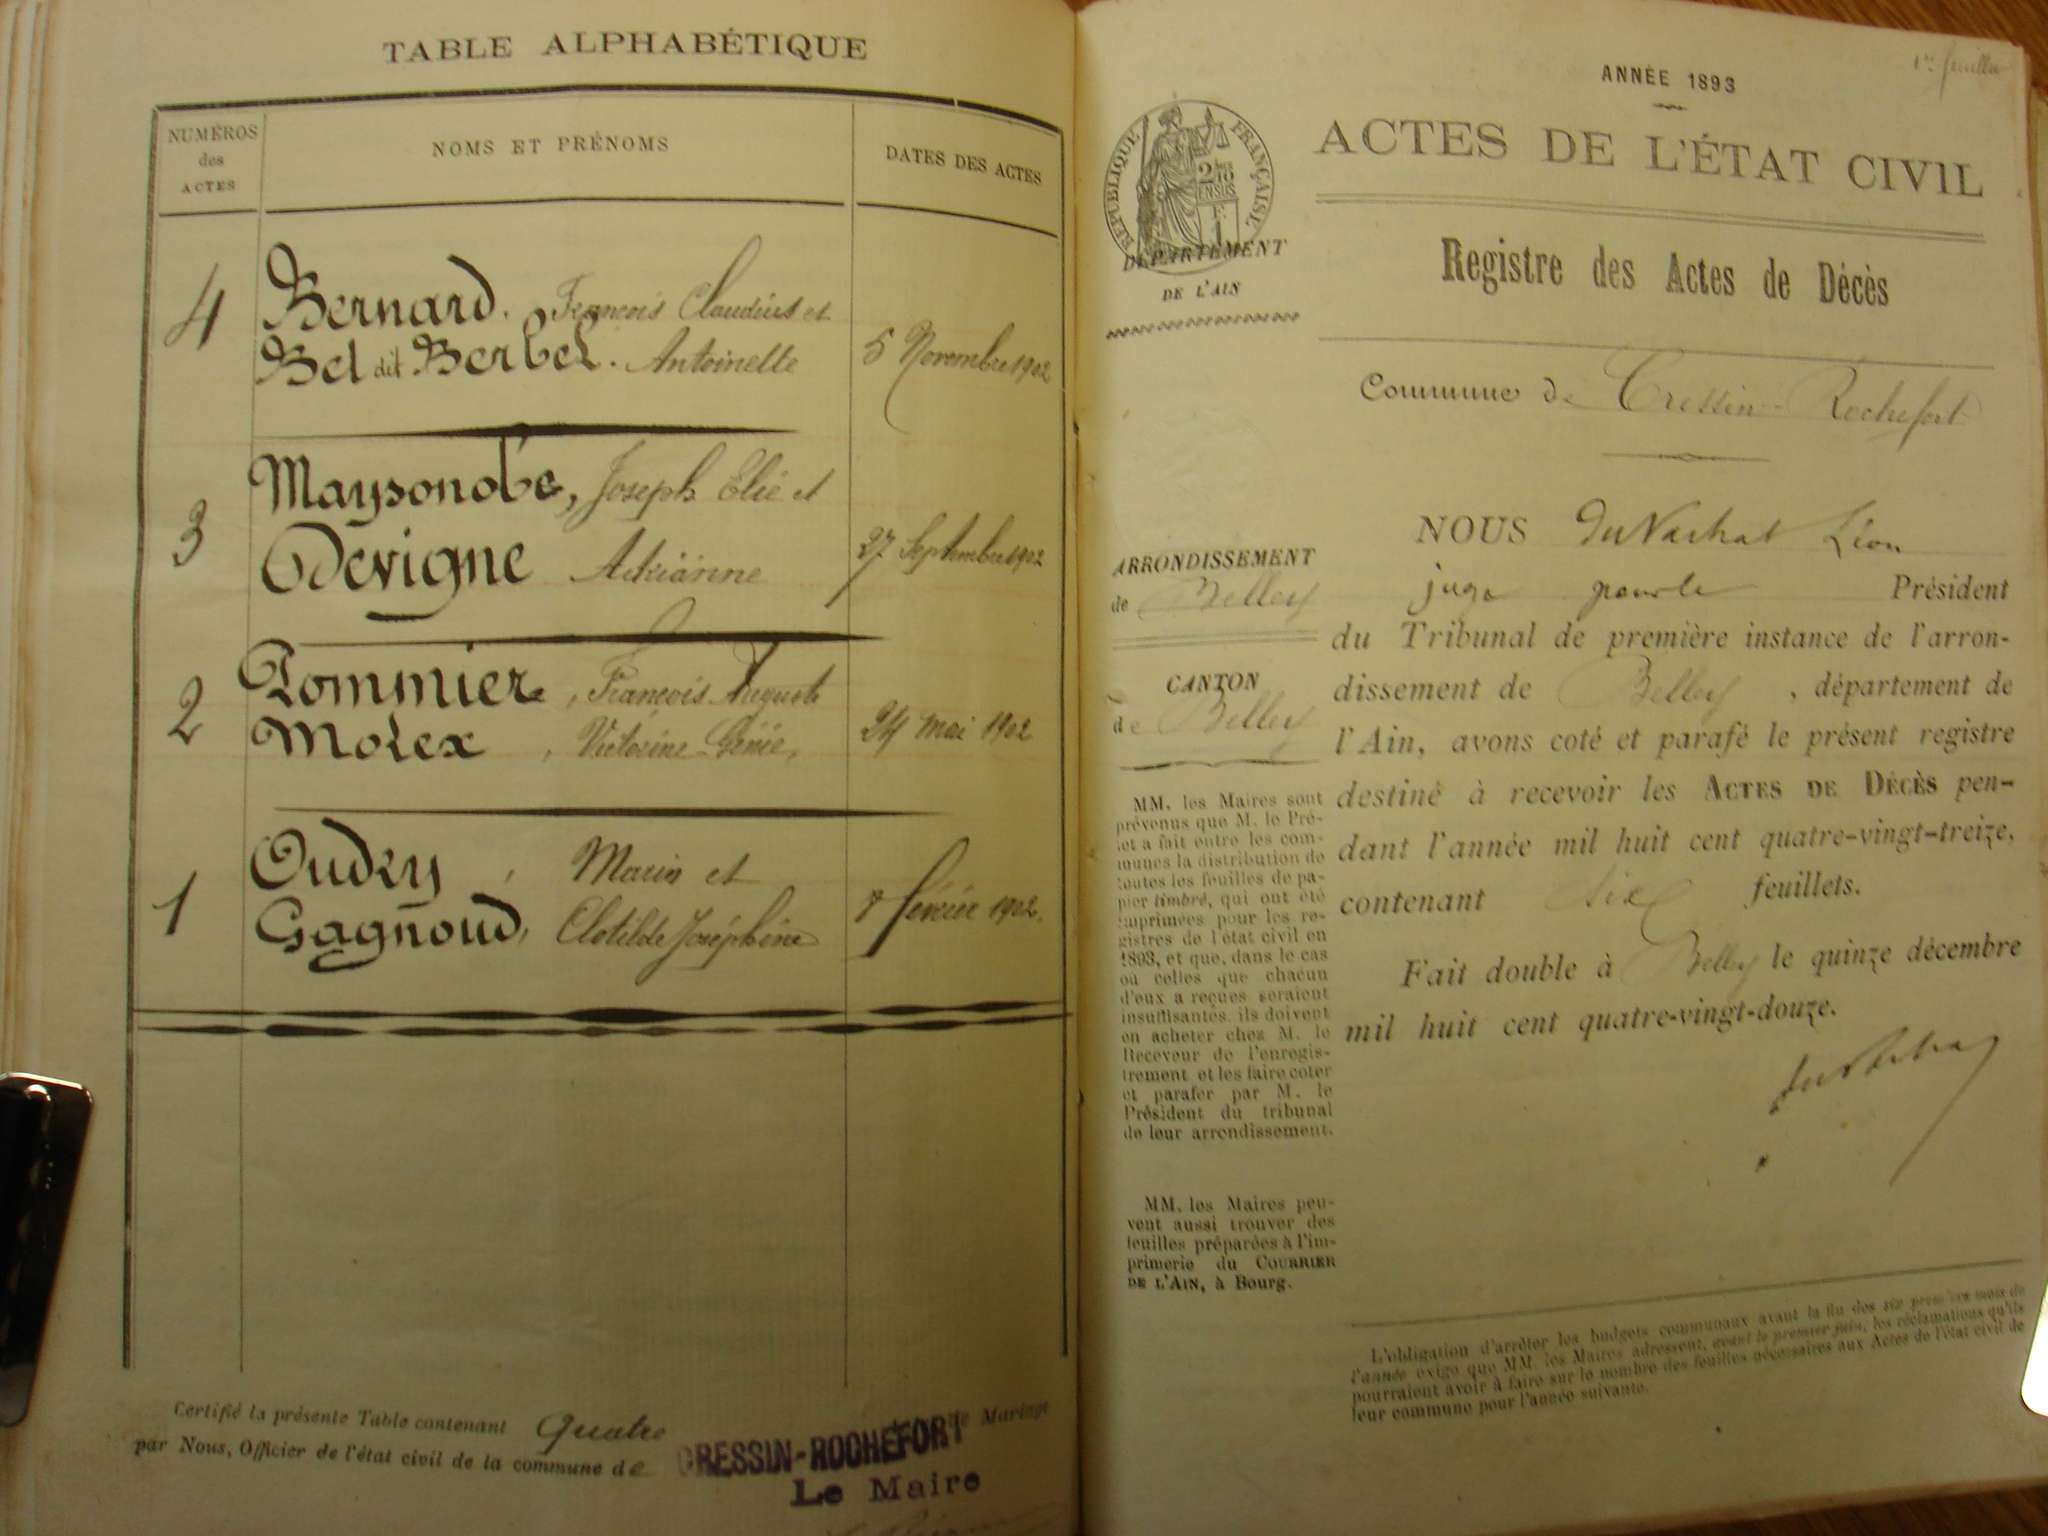 TABLE ALPHABÉTIQUE
NUMÉROS des ACTES
NOMS ET PRÉNOMS
DATES DES ACTES
4
Bernard. François Claudius et
Bel dit Berbel. Antoinette
5 Novembre 1902
3
Maysonobe, Joseph Elié et
Devigne Adrianne
27 Septembre 1902
2
Pommier, François Auguste
Molex, Victorine Génie,
24 mai 1902
1
Oudry, Marin et
Gagnoud, Clotilde Joséphine
8 février 1902.
Certifié la présente Table contenant Quatre de Mariage
par Nous, Officier de l'état civil de la commune de CRESSIN-ROCHEFORT
Le Maire
1er feuillet
ANNÉE 1893
ACTES DE L'ÉTAT CIVIL
RÉPUBLIQUE FRANÇAISE
DÉPARTEMENT
DE L'AIN
Registre des Actes de Décès
Commune de Cressin-Rochefort
ARRONDISSEMENT
de Belley
CANTON
de Belley
MM. les Maires sont
prévenus que M. le Pré-
fet a fait entre les com-
munes la distribution de
toutes les feuilles de pa-
pier timbré, qui ont été
imprimées pour les re-
gistres de l'état civil en
1893, et que, dans le cas
où celles que chacun
d'eux a reçues seraient
insuffisantes, ils doivent
en acheter chez M. le
Receveur de l'enregis-
trement et les faire coter
et parafer par M. le
Président du tribunal
de leur arrondissement.
MM. les Maires peu-
vent aussi trouver des
feuilles préparées à l'im-
primerie du COURRIER
DE L'AIN, à Bourg.
NOUS du Vachat Léon
juge pour le Président
du Tribunal de première instance de l'arron-
dissement de Belley, département de
l'Ain, avons coté et parafé le présent registre
destiné à recevoir les ACTES DE DÉCÈS pen-
dant l'année mil huit cent quatre-vingt-treize,
contenant six feuillets.
Fait double à Belley le quinze décembre
mil huit cent quatre-vingt-douze.
du Vachat
L'obligation d'arrêter les budgets communaux avant la fin des six premiers mois de
l'année exige que MM. les Maires adressent, avant le premier juin, les réclamations qu'ils
pourraient avoir à faire sur le nombre des feuilles nécessaires aux Actes de l'état civil de
leur commune pour l'année suivante.